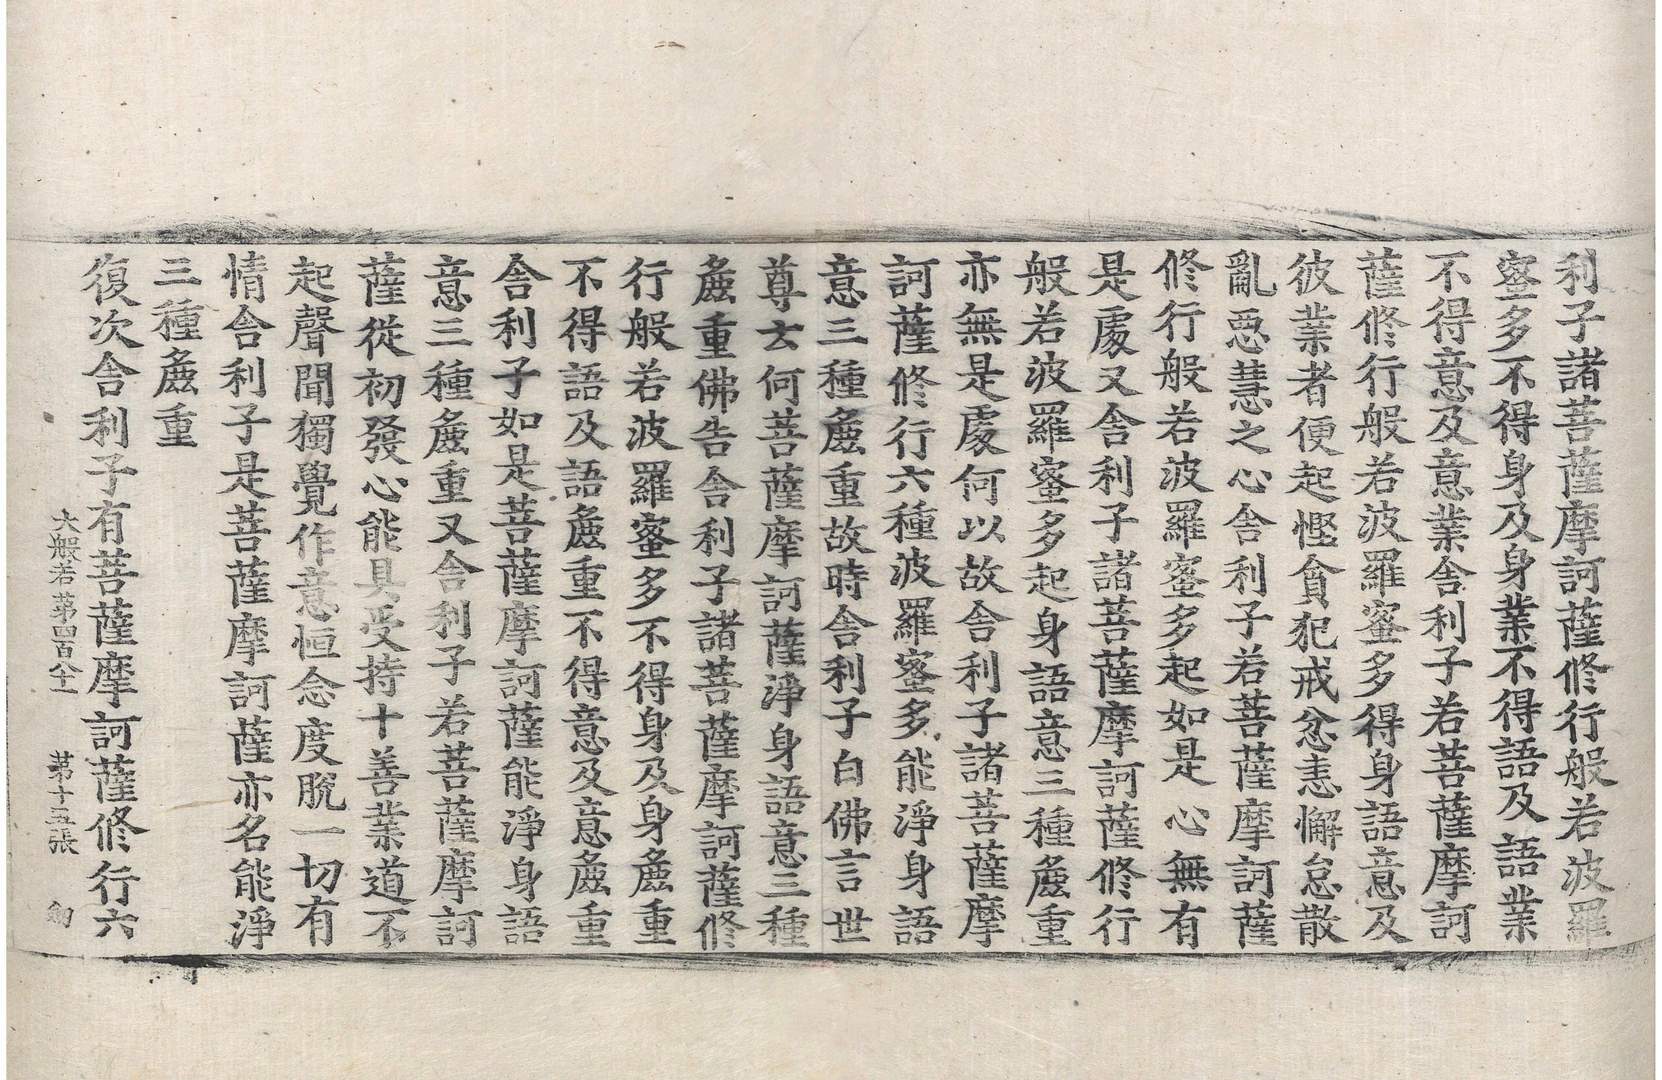 利子諸菩薩摩訶薩修行般若波羅
蜜多不得身及身業不得語及語業
不得意及意業舎利子若菩薩摩訶
薩修行般若波羅蜜多得身語意及
彼業者便起慳貪犯戒忿恚懈怠散
亂惡慧之心舎利子若菩薩摩訶薩
修行般若波羅蜜多起如是心無有
是處又舎利子諸菩薩摩訶薩修行
般若波羅蜜多起身語意三種麁重
亦無是處何以故舎利子諸菩薩摩
訶薩修行六種波羅蜜多能淨身語
意三種麁重故時舎利子白佛言世
尊云何菩薩摩訶薩淨身語意三種
麁重佛告舎利子諸菩薩摩訶薩修
行般若波羅蜜多不得身及身麁重
不得語及語麁重不得意及意麁重
舎利子如是菩薩摩訶薩能淨身語
意三種麁重又舎利子若菩薩摩訶
薩從初發心能具受持十善業道不
起聲聞獨覺作意恒念度脫一切有
情舎利子是菩薩摩訶薩亦名能淨
三種麁重
復次舎利子有菩薩摩訶薩修行六
大般若苐四百八十一 苐十五張 劒